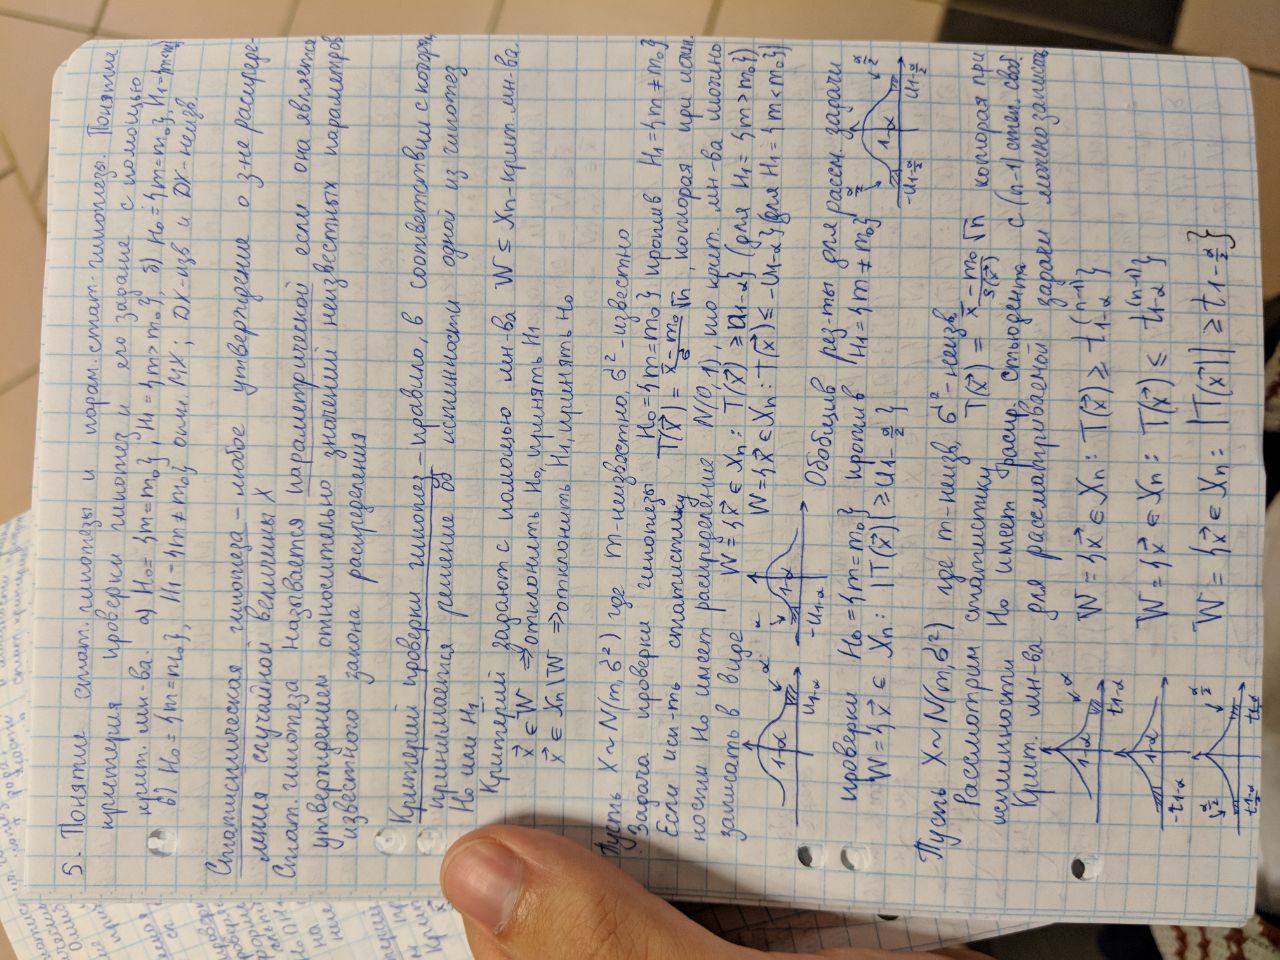 5. Понятие стат. гипотезы и парам. стат. гипотезы. Понятие
критерия проверки гипотез и его задание с помощью
крит. мн-ва. а) H₀ = {m=m₀}, H₁ = {m>m₀}, б) H₀ = {m=m₀}, H₁ = {m<m₀}
в) H₀ = {m=m₀}, H₁ = {m≠m₀} отн. MX; DX-изв и DX-неизв.
Статистическая гипотеза – любое утверждение о з-не распреде-
ления случайной величины X
Стат. гипотеза называется параметрической если она является
утверждением относительно значений неизвестных параметров
известного закона распределения
Критерий проверки гипотез – правило, в соответствии с которым
принимается решение об истинности одной из гипотез
H₀ или H₁.
Критерий задают с помощью мн-ва W ⊆ Xn – крит. мн-ва.
x⃗ ∈ W ⇒ отклонить H₀, принять H₁
x⃗ ∈ Xn\W ⇒ отклонить H₁, принять H₀
Пусть X~N(m,σ²) где m-неизвестно, σ²-известно
Задача проверки гипотезы H₀ = {m=m₀} против H₁ = {m≠m₀}
Если исп-ть статистику T(x⃗) = (x̄-m₀)/σ √n, которая при истин-
ности H₀ имеет распределение N(0,1), то крит. мн-ва можно
записать в виде W = {x⃗ ∈ Xn : T(x⃗) ≥ u1-α} (для H₁ = {m>m₀})
W = {x⃗ ∈ Xn : T(x⃗) ≤ -u1-α} (для H₁ = {m<m₀})
1-α α u1-α
α 1-α -u1-α
Обобщив рез-ты для рассм. задачи
проверки H₀ = {m=m₀} против H₁ = {m≠m₀}
W = {x⃗ ∈ Xn : |T(x⃗)| ≥ u1-α/2}
α/2 1-α α/2
-u1-α/2 u1-α/2
Пусть X~N(m,σ²) где m-неизв, σ²-неизв.
Рассмотрим статистику T(x⃗) = (x̄-m₀)/S(x⃗) √n которая при
истинности H₀ имеет распр. Стьюдента с (n-1) степ. своб.
Крит. мн-ва для рассматриваемой задачи можно записать
1-α α t1-α
W = {x⃗ ∈ Xn : T(x⃗) ≥ t1-α^(n-1)}
1-α -t1-α
W = {x⃗ ∈ Xn : T(x⃗) ≤ t1-α^(n-1)}
α/2 α/2
W = {x⃗ ∈ Xn : |T(x⃗)| ≥ t1-α/2}